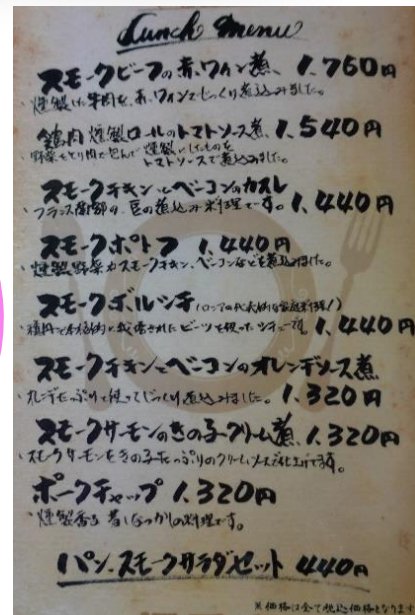 Lunch Menu
スモークビーフの赤ワイン煮 1,760円
・燻製した牛肉を、赤ワインでじっくり煮込みました。
鶏肉燻製ロールのトマトソース煮 1,540円
野菜をとり肉で包んで燻製にしたものを
トマトソースで煮込みました。
スモークチキンとベーコンのカスレ
・フランス南部の豆の煮込み料理です。 1,440円
スモークポトフ 1,440円
・燻製野菜やスモークチキン、ベーコンなどを煮込みました。
スモークボルシチ (ロシアの代表的な家庭料理!)
栽培されたビーツを使ったシチューです。 1,440円
スモークチキンとベーコンのオレンジソース煮
・オレンジをたっぷり使ってじっくり煮込みました。 1,320円
スモークサーモンのきの子クリーム煮 1,320円
・スモークサーモンをきの子たっぷりのクリームソースで仕上げてます。
ポークチャップ 1,320円
・燻製香る 昔なつかしの料理です。
パン、スモークサラダセット 440円
※価格は全て税込価格となります